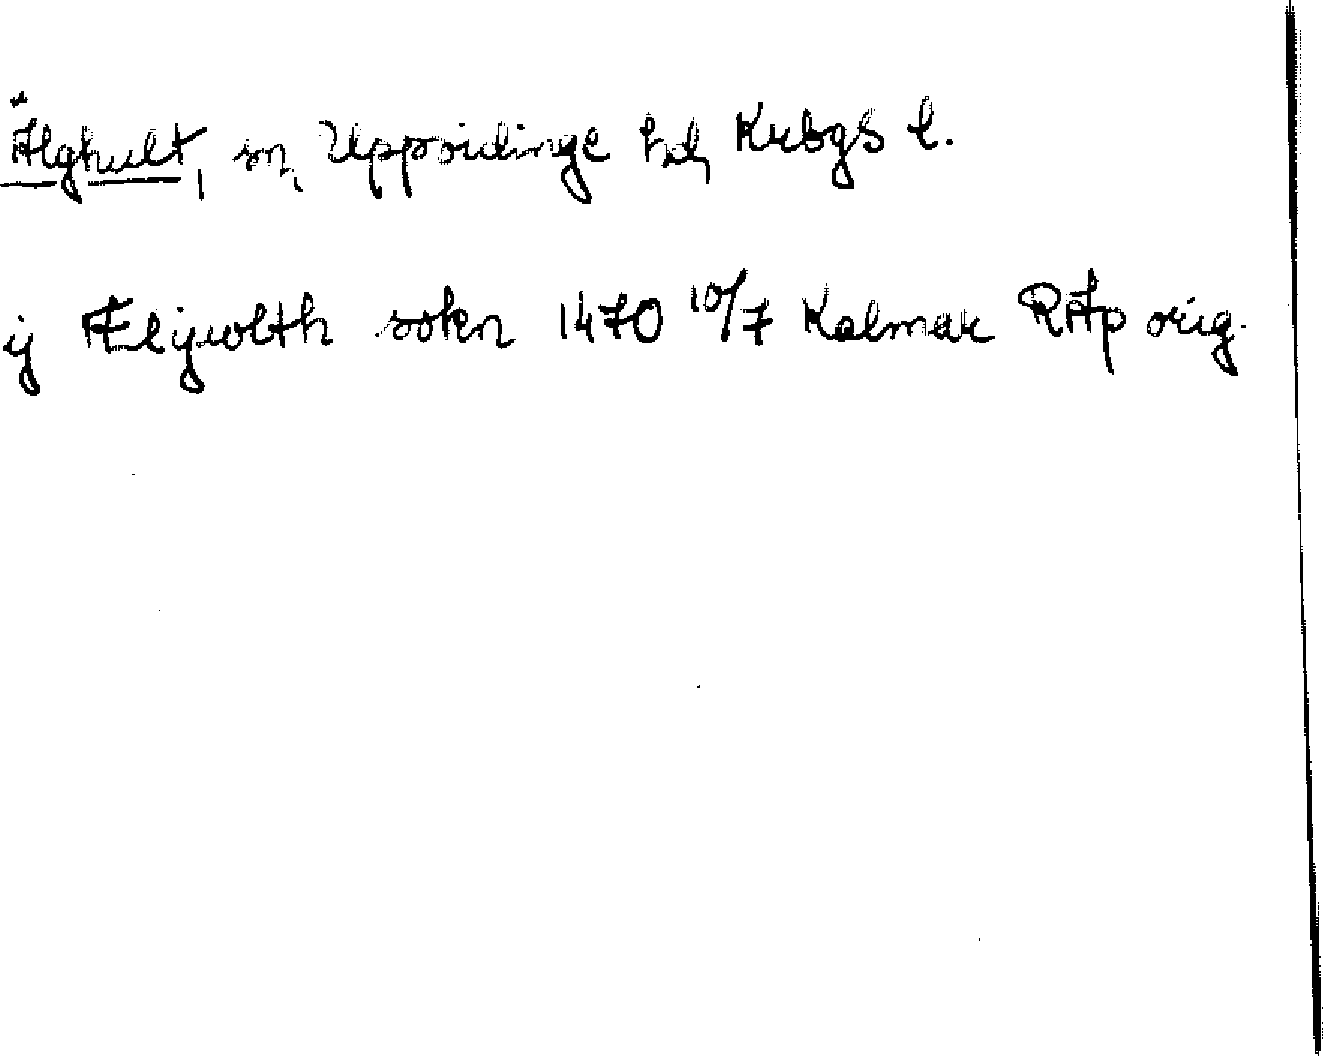 Älghult, sn, Uppvidinge hd, Krbgs l.
ijÆlijwolth sokn 1470 10/7 Kalmar RAp orig.